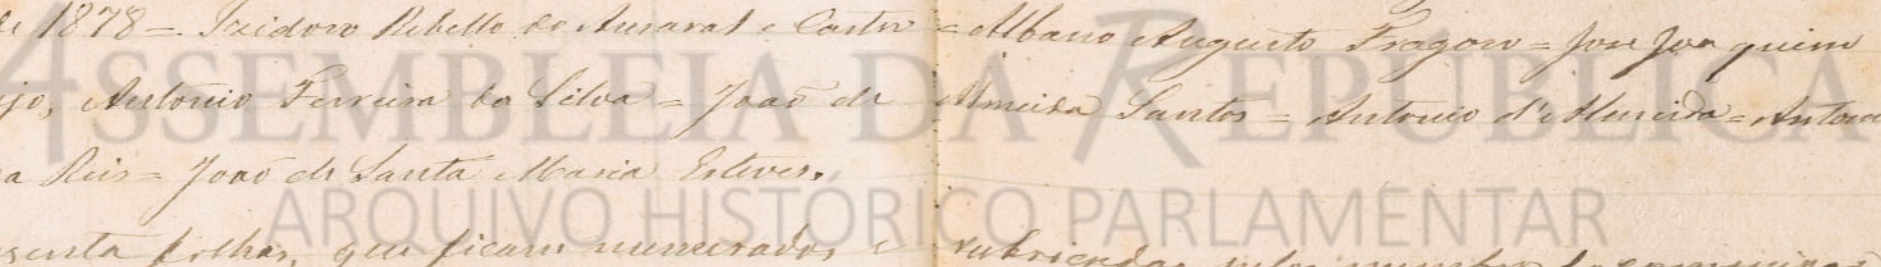 de 1878 = Izidoro Rebello do Amaral e Castro = Albano Augusto Fragoso = José Joaquim
ijo, Antonio Ferreira da Silva = João de Almeida Santos = Antonio d'Almeida = Antonio
a Reis = João de Santa Maria Esteves.
ASSEMBLEIA DA REPÚBLICA
ARQUIVO HISTÓRICO PARLAMENTAR
senta folhas, que ficam numeradas e rubricadas pelos membros